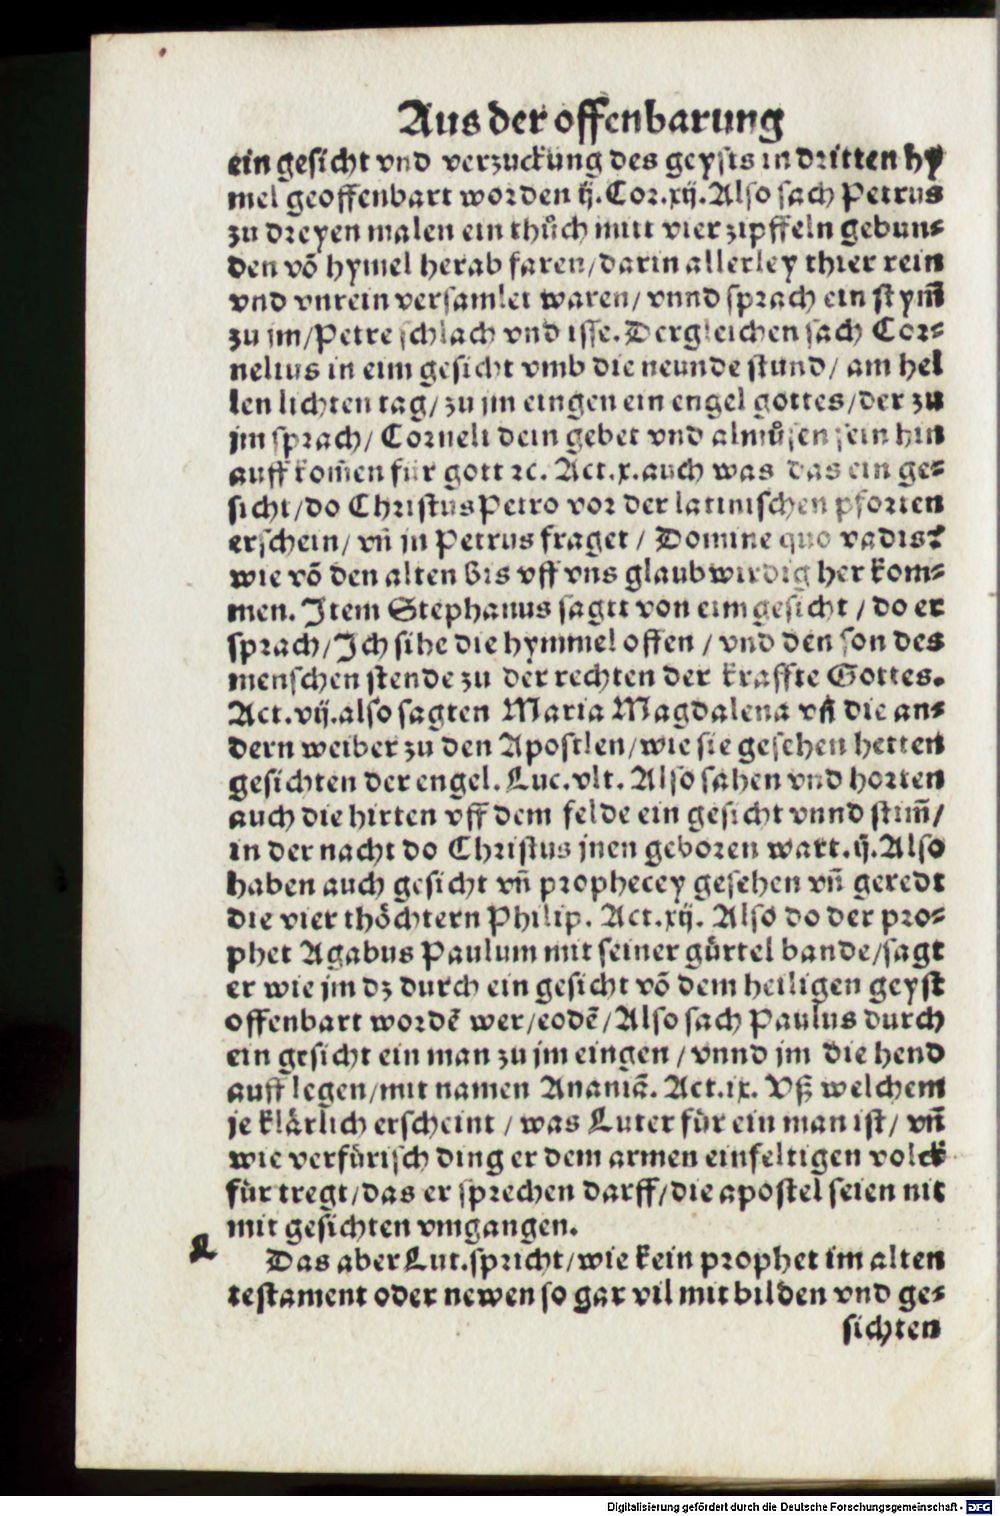 Aus der offenbarung
ein gesicht vnd verzuckung des geysts in dritten hy
mel geoffenbart worden ij. Cor.xij. Also sach Petrus
zu dreyen malen ein thůch mitt vier zipffeln gebun⸗
den võ hymel herab faren/darin allerley thier rein
vnd vnrein versamlet waren/ vnnd sprach ein stym̃
zu jm/Petre schlach vnd isse. Dergleichen sach Cor⸗
nelius in eim gesicht vmb die neunde stund/ am hel
len lichten tag/ zu jm eingen ein engel gottes/der zu
jm sprach/ Corneli dein gebet vnd almůsen sein hin
auff kom̃en für gott ꝛc. Act.x.auch was das ein ge⸗
sicht/do Christus Petro vor der latinischen pforten
erschein/ vñ jn Petrus fraget / Domine quo vadis?
wie võ den alten bis vff vns glaubwirdig her kom⸗
men. Item Stephanus sagtt von eim gesicht / do er
sprach/Ich sihe die hymmel offen / vnd den son des
menschen stende zu der rechten der kraffte Gottes.
Act.vij.also sagten Maria Magdalena vñ die an⸗
dern weiber zu den Apostlen/wie sie gesehen hetten
gesichten der engel. Luc.vlt. Also sahen vnd horten
auch die hirten vff dem felde ein gesicht vnnd stim̃/
in der nacht do Christus jnen geboren wart.ij.Also
haben auch gesicht vñ prophecey gesehen vñ geredt
die vier thöchtern Philip. Act.xij. Also do der pro⸗
phet Agabus Paulum mit seiner gürtel bande/sagt
er wie jm dz durch ein gesicht võ dem heiligen geyst
offenbart wordẽ wer/eodẽ/Also sach Paulus durch
ein gesicht ein man zu jm eingen / vnnd jm die hend
auff legen/mit namen Ananiã. Act.ix. Vß welchem
je klärlich erscheint / was Luter für ein man ist/ vñ
wie verfürisch ding er dem armen einfeltigen volck
für tregt/das er sprechen darff/die apostel seien nit
mit gesichten vmgangen.
L
Das aber Lut.spricht/wie kein prophet im alten
testament oder newen so gar vil mit bilden vnd ge⸗
sichten
Digitalisierung gefördert durch die Deutsche Forschungsgemeinschaft - DFG